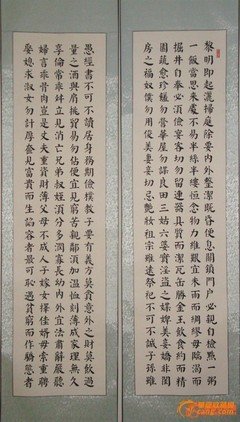 黎明即起灑掃庭除要內外整潔既昏便息關鎖門戶必親自檢點一粥
一飯當思來處不易半絲半縷恆念物力維艱宜未雨而綢繆毋臨渴而
掘井自奉必須儉宴客切勿留連器具質而潔瓦缶勝金玉飲食約而精
園蔬愈珍饈勿營華屋勿謀良田三姑六婆實淫盜之媒婢美妾嬌非閨
房之福奴僕勿用俊美妻妾切忌艷妝祖宗雖遠祭祀不可不誠子孫雖
愚經書不可不讀居身務期儉樸教子要有義方莫貪意外之財莫飲過
量之酒與肩挑貿易勿佔便宜見貧苦親鄰須加溫恤刻薄成家理無久
享倫常乖舛立見消亡兄弟叔姪須分多潤寡長幼內外宜法肅辭嚴聽
婦言乖骨肉豈是丈夫重資財薄父母不成人子嫁女擇佳婿毋索重聘
娶媳求淑女勿計厚奩見富貴而生諂容者最可恥遇貧窮而作驕態者
华夏收藏网
cang.com